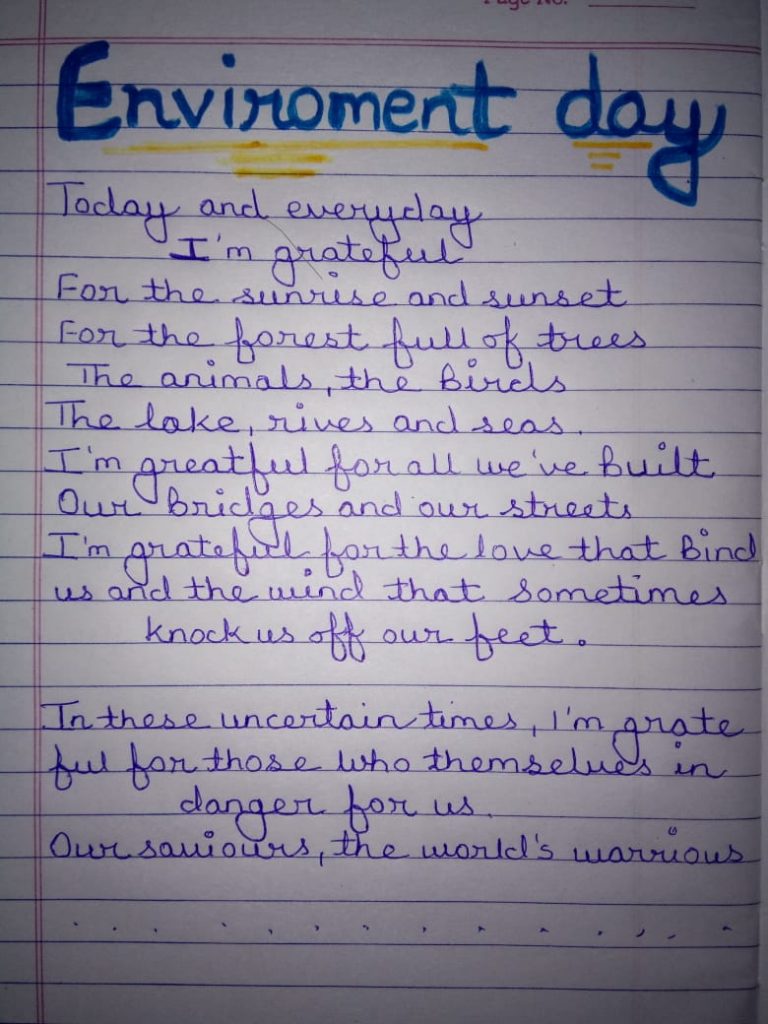 Page No.
Enviroment day
Today and everyday
I'm grateful
For the sunrise and sunset
For the forest full of trees
The animals, the Birds
The lake, rives and seas.
I'm greatful for all we've built
Our bridges and our streets
I'm grateful for the love that Bind
us and the wind that sometimes
knock us off our feet.
In these uncertain times, I'm grate
ful for those who themselves in
danger for us.
Our saviours, the world's warrious